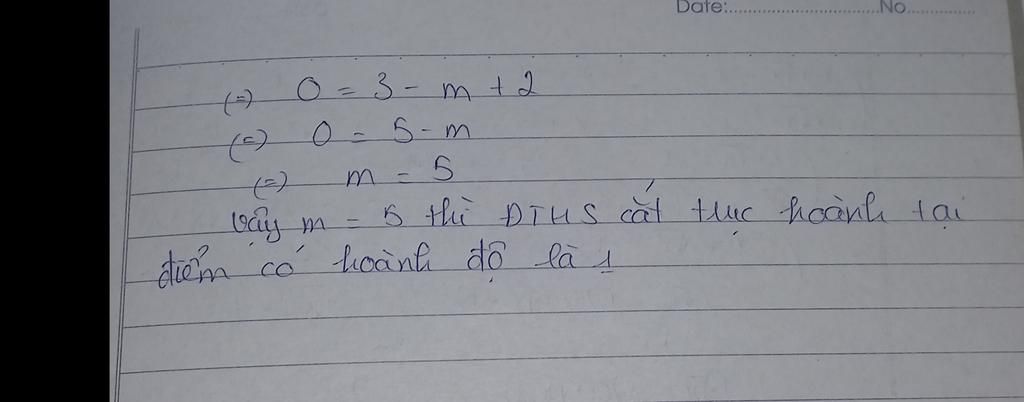 Date:..............................No..............
(=) 0 = 3 - m + 2
(=) 0 = 5 - m
(=) m = 5
Vậy m = 5 thì ĐTHS cắt trục hoành tại
điểm có hoành độ là 1